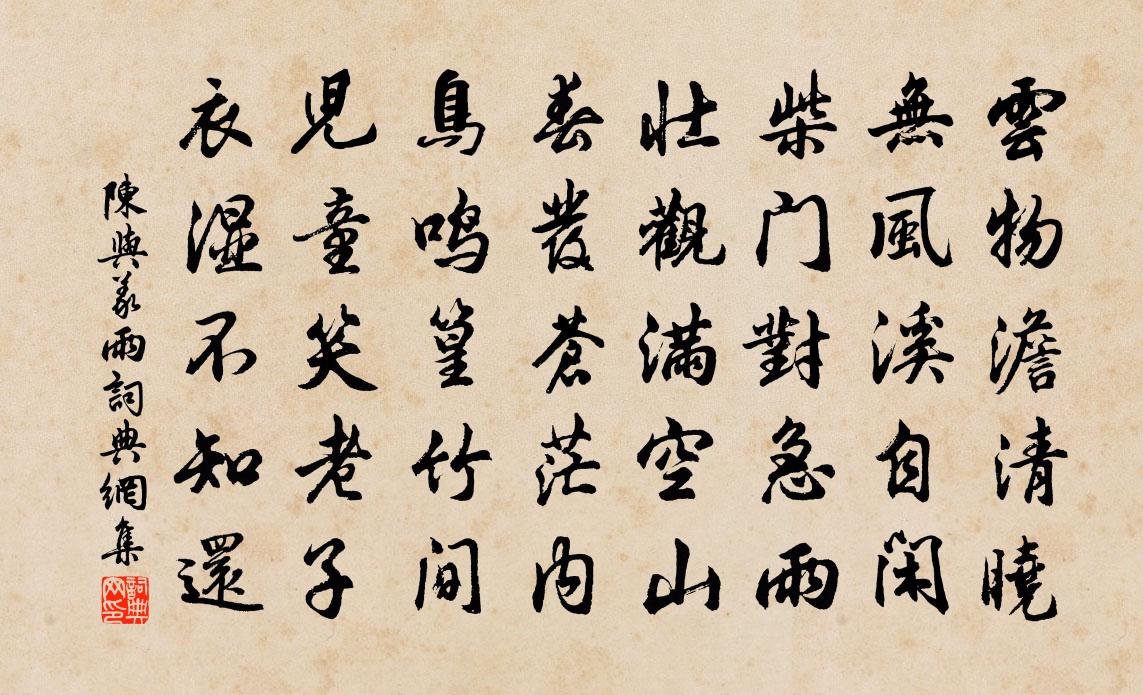 雲物澹清曉
無風溪自閑
柴门對急雨
壯觀滿空山
春發蒼茫内
鳥鳴篁竹間
児童笑老子
衣濕不知還
陳與義雨詞典網集
詞典网印